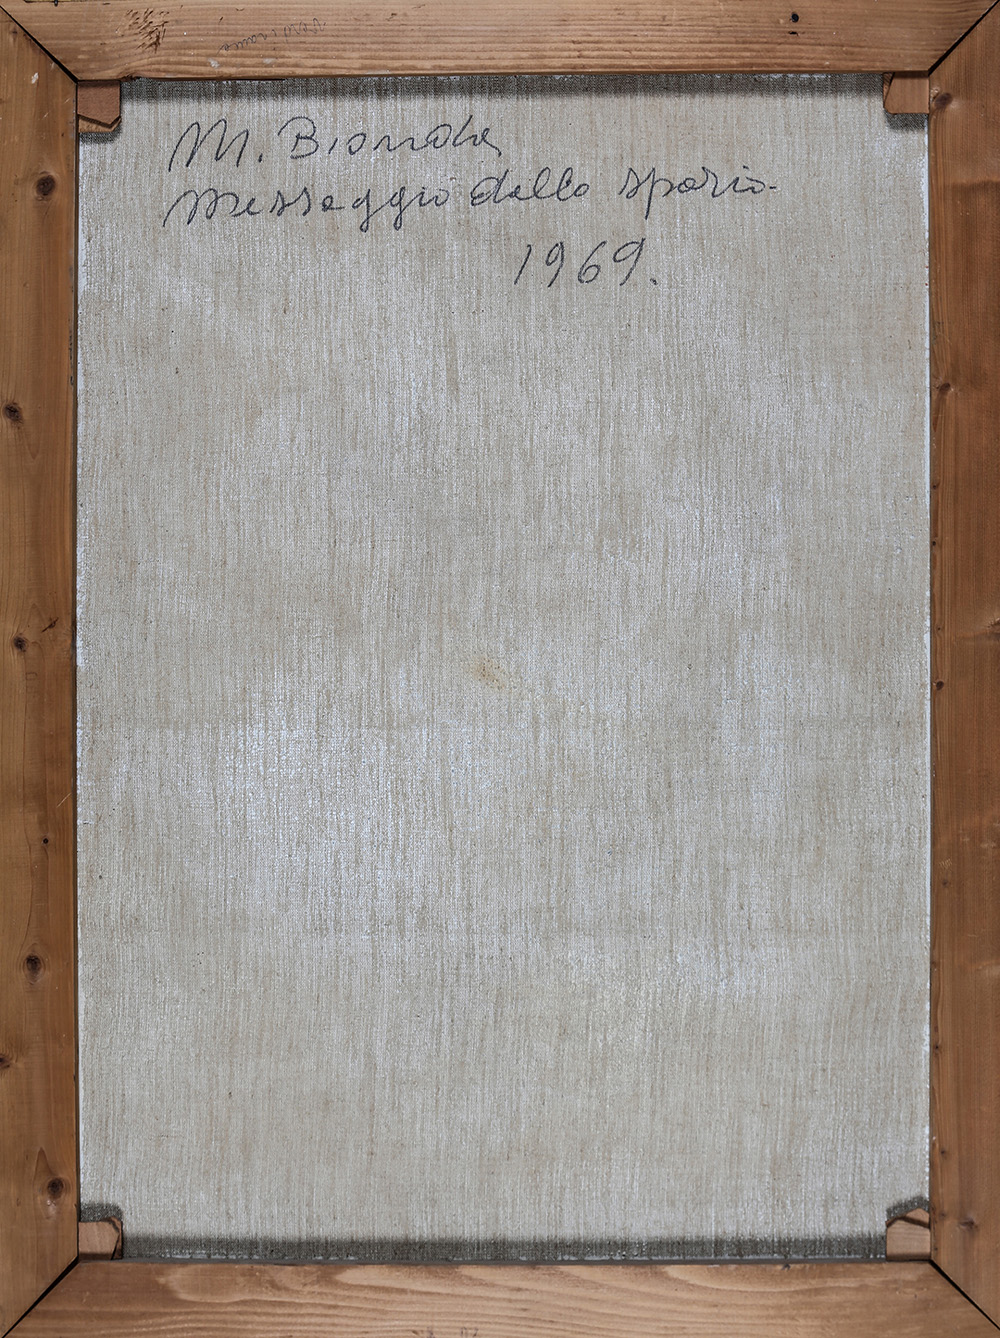 M. Bionda
Messaggio dallo spazio.
1969.